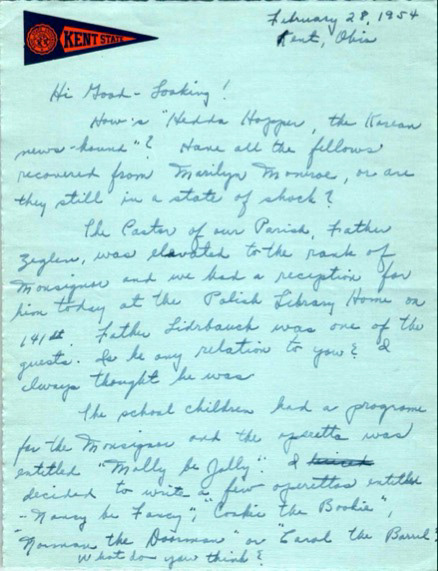 KENT STATE
February 28, 1954
Kent, Ohio
Hi Good-Looking!
How's "Hedda Hopper, the Korean
news-hound"? Have all the fellows
recovered from Marilyn Monroe, or are
they still in a state of shock?
The Pastor of our Parish, Father
was elevated to the rank of
Monsignor and we had a reception for
him today at the Polish Library Home on
141st. Father was one of the
guests. Is he any relation to you? I
always thought he was
The school children had a programe
for the Monsignor and the operetta was
entitled "Molly be Jolly". I
decided to write a few operettas entitled
- Nancy be Fancy", "Cookie the Bookie",
"Norman the Doorman" or "Carol the Barrel".
What do you think?